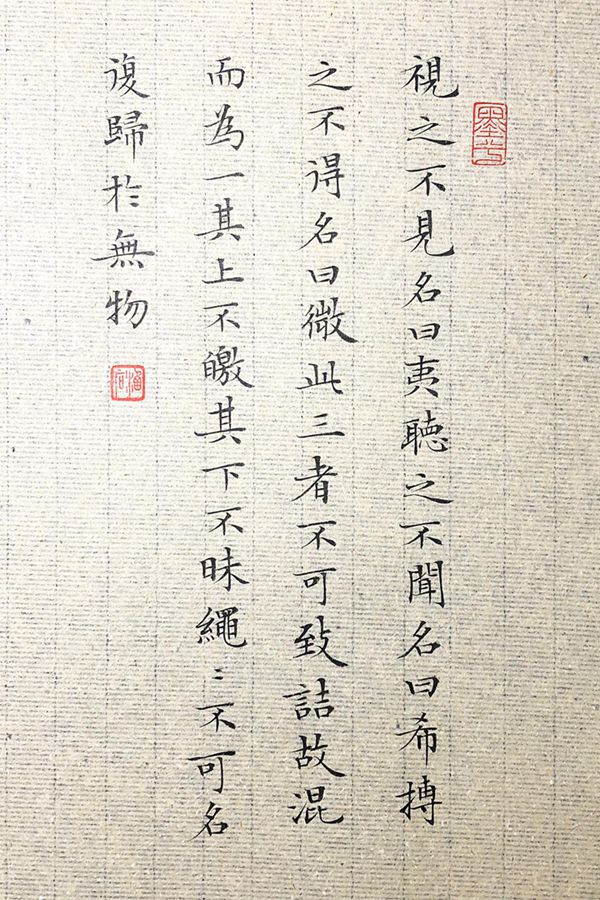 視之不見名曰夷聴之不聞名曰希搏
之不得名曰微此三者不可致詰故混
而為一其上不皦其下不昧繩〻不可名
復歸於無物